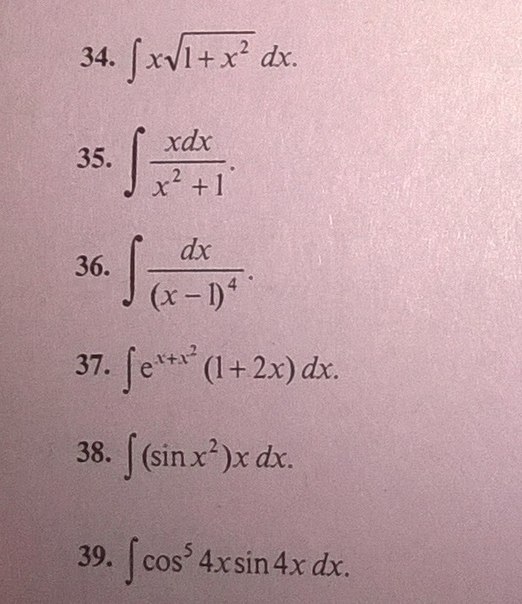 34. ∫ x√(1 + x²) dx.
35. ∫ xdx / (x² + 1).
36. ∫ dx / (x − 1)⁴.
37. ∫ e^(x+x²) (1 + 2x) dx.
38. ∫ (sin x²)x dx.
39. ∫ cos⁵ 4x sin 4x dx.